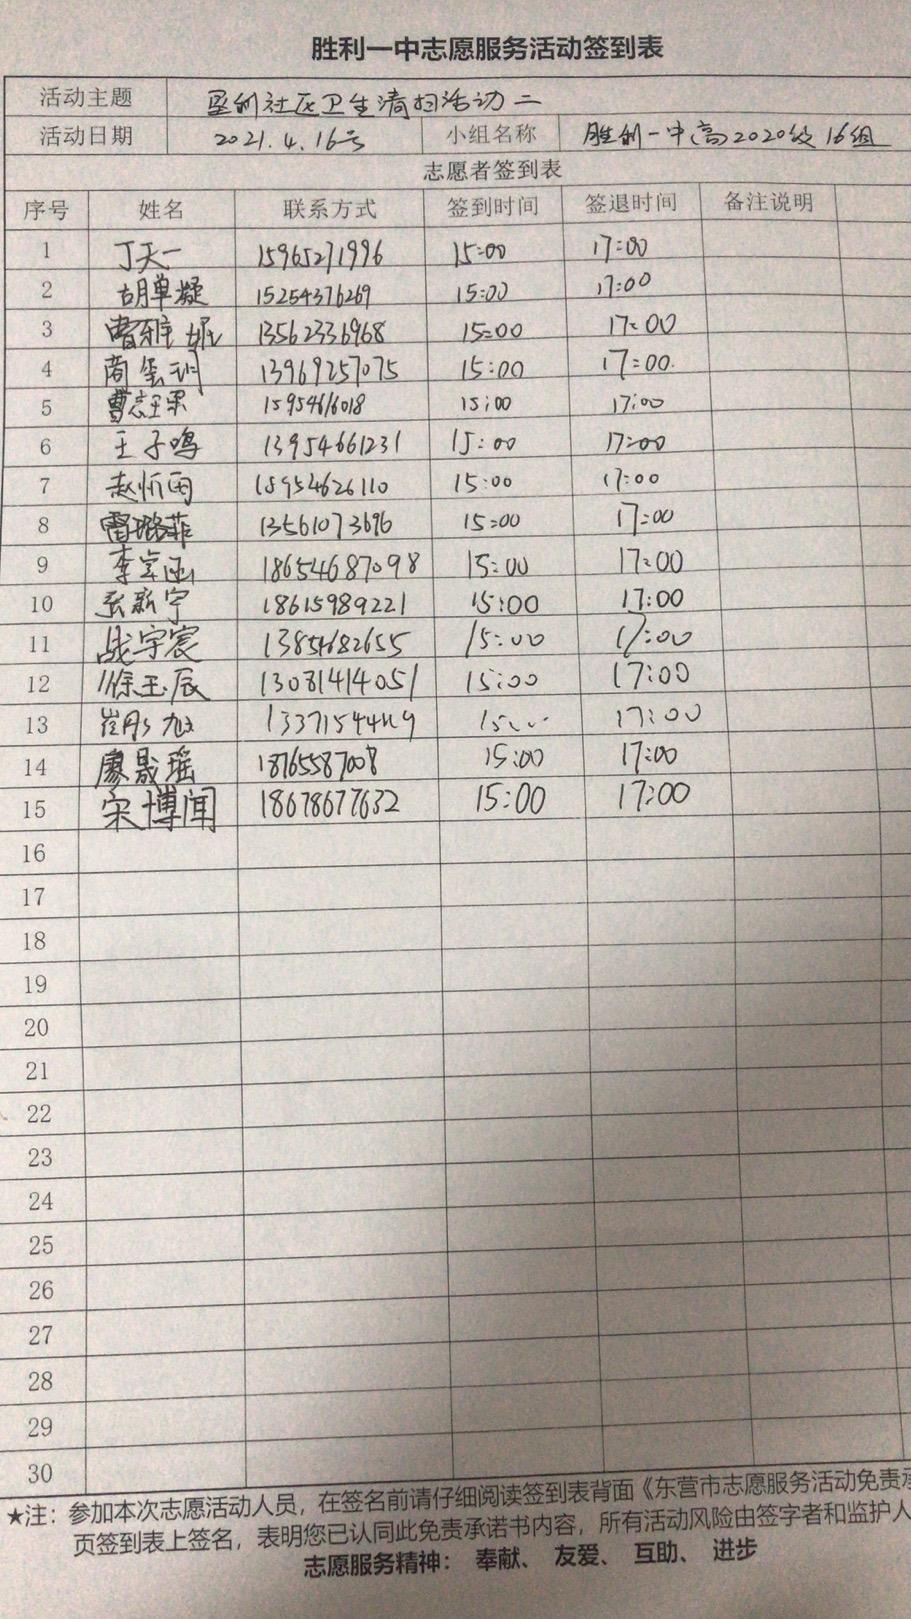 胜利一中志愿服务活动签到表
活动主题 垦利社区卫生清扫活动二
活动日期 2021.4.16号 小组名称 胜利一中高2020级16组
志愿者签到表
序号 姓名 联系方式 签到时间 签退时间 备注说明
1 丁天一 15965271996 15:00 17:00
2 胡单凝 15254376269 15:00 17:00
3 曹雅妮 13562336968 15:00 17:00
4 商 13969257075 15:00 17:00.
5 曹志 15954616018 15:00 17:00
6 王子鸣 13954661231 15:00 17:00
7 赵忻雨 15954626110 15:00 17:00
8 雷璐菲 13561073696 15:00 17:00
9 李 18654687098 15:00 17:00
10 张新宇 18615989221 15:00 17:00
11 战宇宸 13854682655 15:00 17:00
12 徐玉辰 13081414051 15:00 17:00
13 崔彤旭 17:00
14 廖晟瑶 18765587008 15:00 17:00
15 宋博闻 18678677632 15:00 17:00
16
17
18
19
20
21
22
23
24
25
26
27
28
29
30
★注：参加本次志愿活动人员，在签名前请仔细阅读签到表背面《东营市志愿服务活动免责承
页签到表上签名，表明您已认同此免责承诺书内容，所有活动风险由签字者和监护人
志愿服务精神： 奉献、 友爱、 互助、 进步